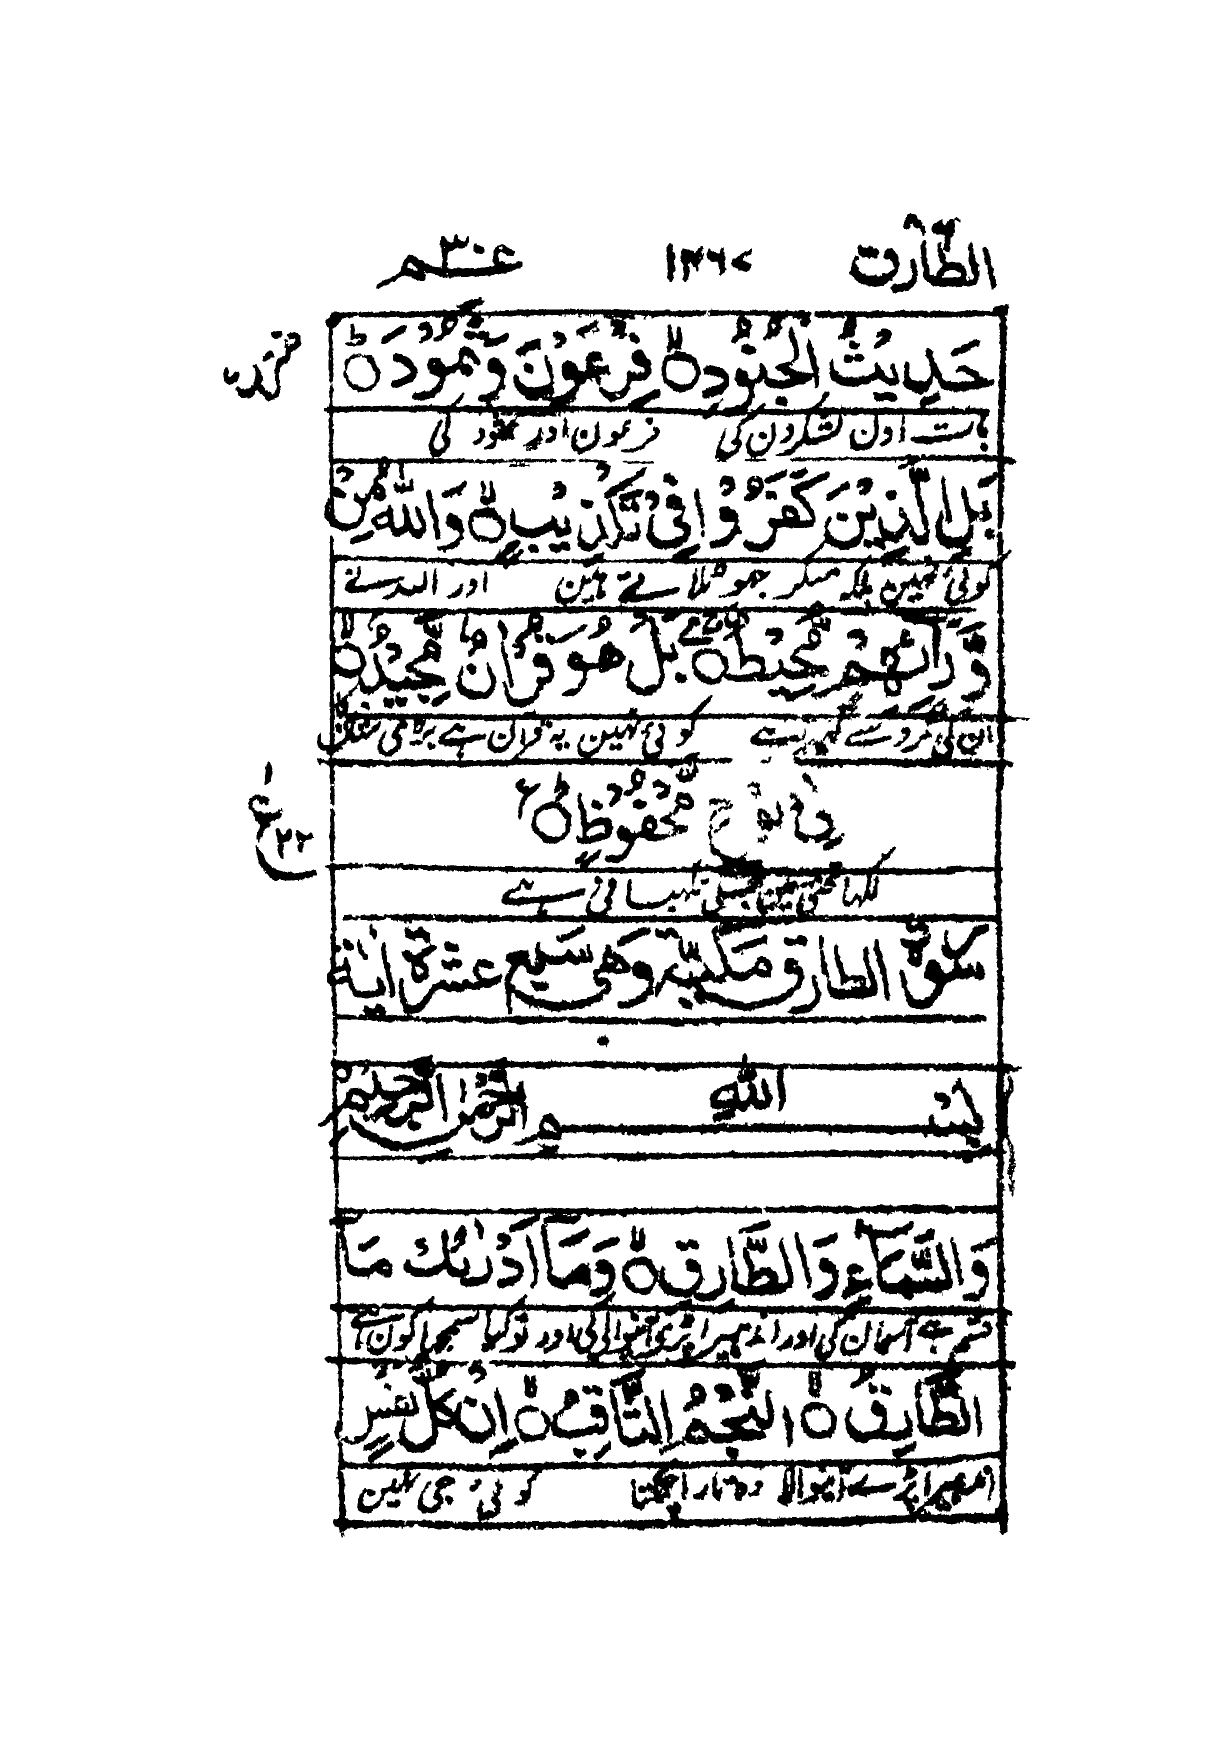 الطارق ١٢٦٧ عم ٣٠
حَدِيْثُ الْجُنُوْدِ ۙ فِرْعَوْنَ وَثَمُوْدَ ؕ
بات اون لشکرون کی فرعون اور ثمود کی
بَلِ الَّذِيْنَ كَفَرُوْا فِيْ تَكْذِيْبٍ ۙ وَّاللّٰهُ مِنْ
کوئی نہین بلکہ منکر جھوٹلاتے ہین اور اللہ نے
وَّرَآئِهِمْ مُّحِيْطٌ ۚ بَلْ هُوَ قُرْاٰنٌ مَّجِيْدٌ ۙ
ان کی گرد سے گھیرا ہے کوئی نہین یہ قرآن ہے بڑی
فِيْ لَوْحٍ مَّحْفُوْظٍ ؕ
ع
٢٢
لکہا تختی مین جسکی نگہبانی ہے
سورة الطارق مكية وهى سبع عشرة اية
بِسْمِ اللّٰهِ الرَّحْمٰنِ الرَّحِيْمِ
وَالسَّمَآءِ وَالطَّارِقِ ۙ وَمَآ اَدْرٰىكَ مَا
قسم ہے آسمان کی اور اندھیرا پڑی آنیوالی کی اور تو کیا سمجھا کون ہے
الطَّارِقُ ۙ النَّجْمُ الثَّاقِبُ ۙ اِنْ كُلُّ نَفْسٍ
اندھیرا پڑے آنیوالا وہ تارا چمکتا کوئی جی نہین